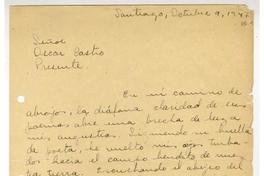 Santiago, Octubre 9, 194
Señor
Oscar Castro
Presente
En mi camino de
abrojos, la diáfana claridad de sus
poemas abre una brecha de luz a
mis angustias. Siguiendo mi huella
de poeta, he vuelto mis ojos turba-
dos hacia el campo bendito de nues-
tra tierra. Escuchando el